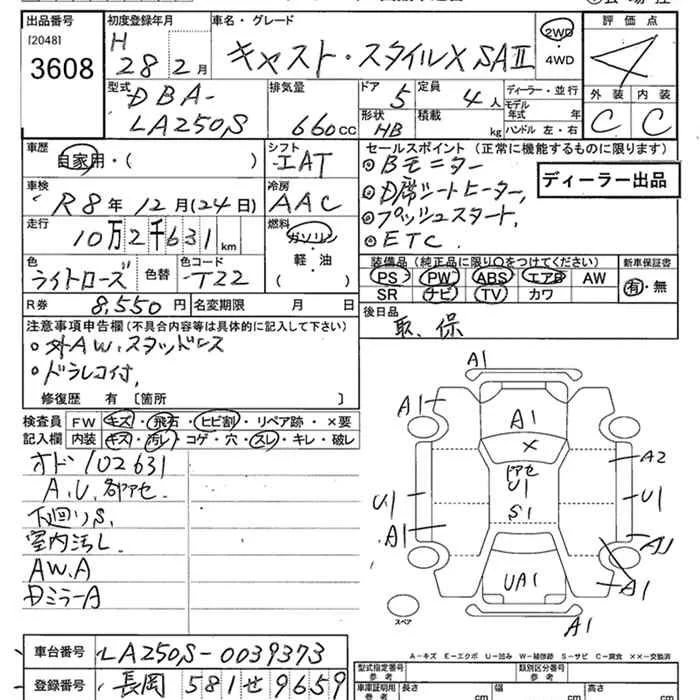 出品番号
[2048]
3608
初度登録年月
H
28 2月
車名・グレード
キャスト・スタイルX SAⅡ
2WD
・
4WD
評価点
4
型式
DBA-
LA250S
排気量
660cc
ドア
5
定員
4人
形状
HB
積載
kg
ディーラー・並行
モデル
年式 年
ハンドル 左・右
外装 内装
C C
車歴
自家用・( )
シフト
IAT
セールスポイント (正常に機能するものに限ります)
◎Bモニター
◎D席シートヒーター,
◎プッシュスタート,
◎ETC.
ディーラー出品
車検
R8年 12月(24日)
冷房
AAC
走行
10万2千631km
燃料
ガソリン
軽・油
( )
色
ライトローズ
色替
色コード
T22
装備品 (純正品に限り○をつけてください)
PS PW ABS エアB AW
SR ナビ TV カワ
新車保証書
有・無
R券 8,550円
名変期限 月 日
後日品
取、保
注意事項申告欄 (不具合内容等は具体的に記入して下さい)
○外AW,スタッドレス
○ドラレコ付,
修復歴 有 〔箇所 〕
検査員
記入欄
FW キズ・飛石・ヒビ割・リペア跡・×要
内装 キズ・汚レ・コゲ・穴・スレ・キレ・破レ
オド102631
A.U.各アセ
下廻りS,
室内汚レ
AW.A
DミラーA
A1
A1
A1
×
アセ
A2
U1
U1
U1
S1
A1
A1
UA1
A1
A1
スペア
A-キズ E-エクボ U-凹み W-補修跡 S-サビ C-腐食 ××-交換済
車台番号
LA250S-0039373
登録番号
長岡 581せ9659
型式指定番号
参考
類別区分番号
参考
車庫証明用
参考
長さ
cm
幅
cm
高さ
cm